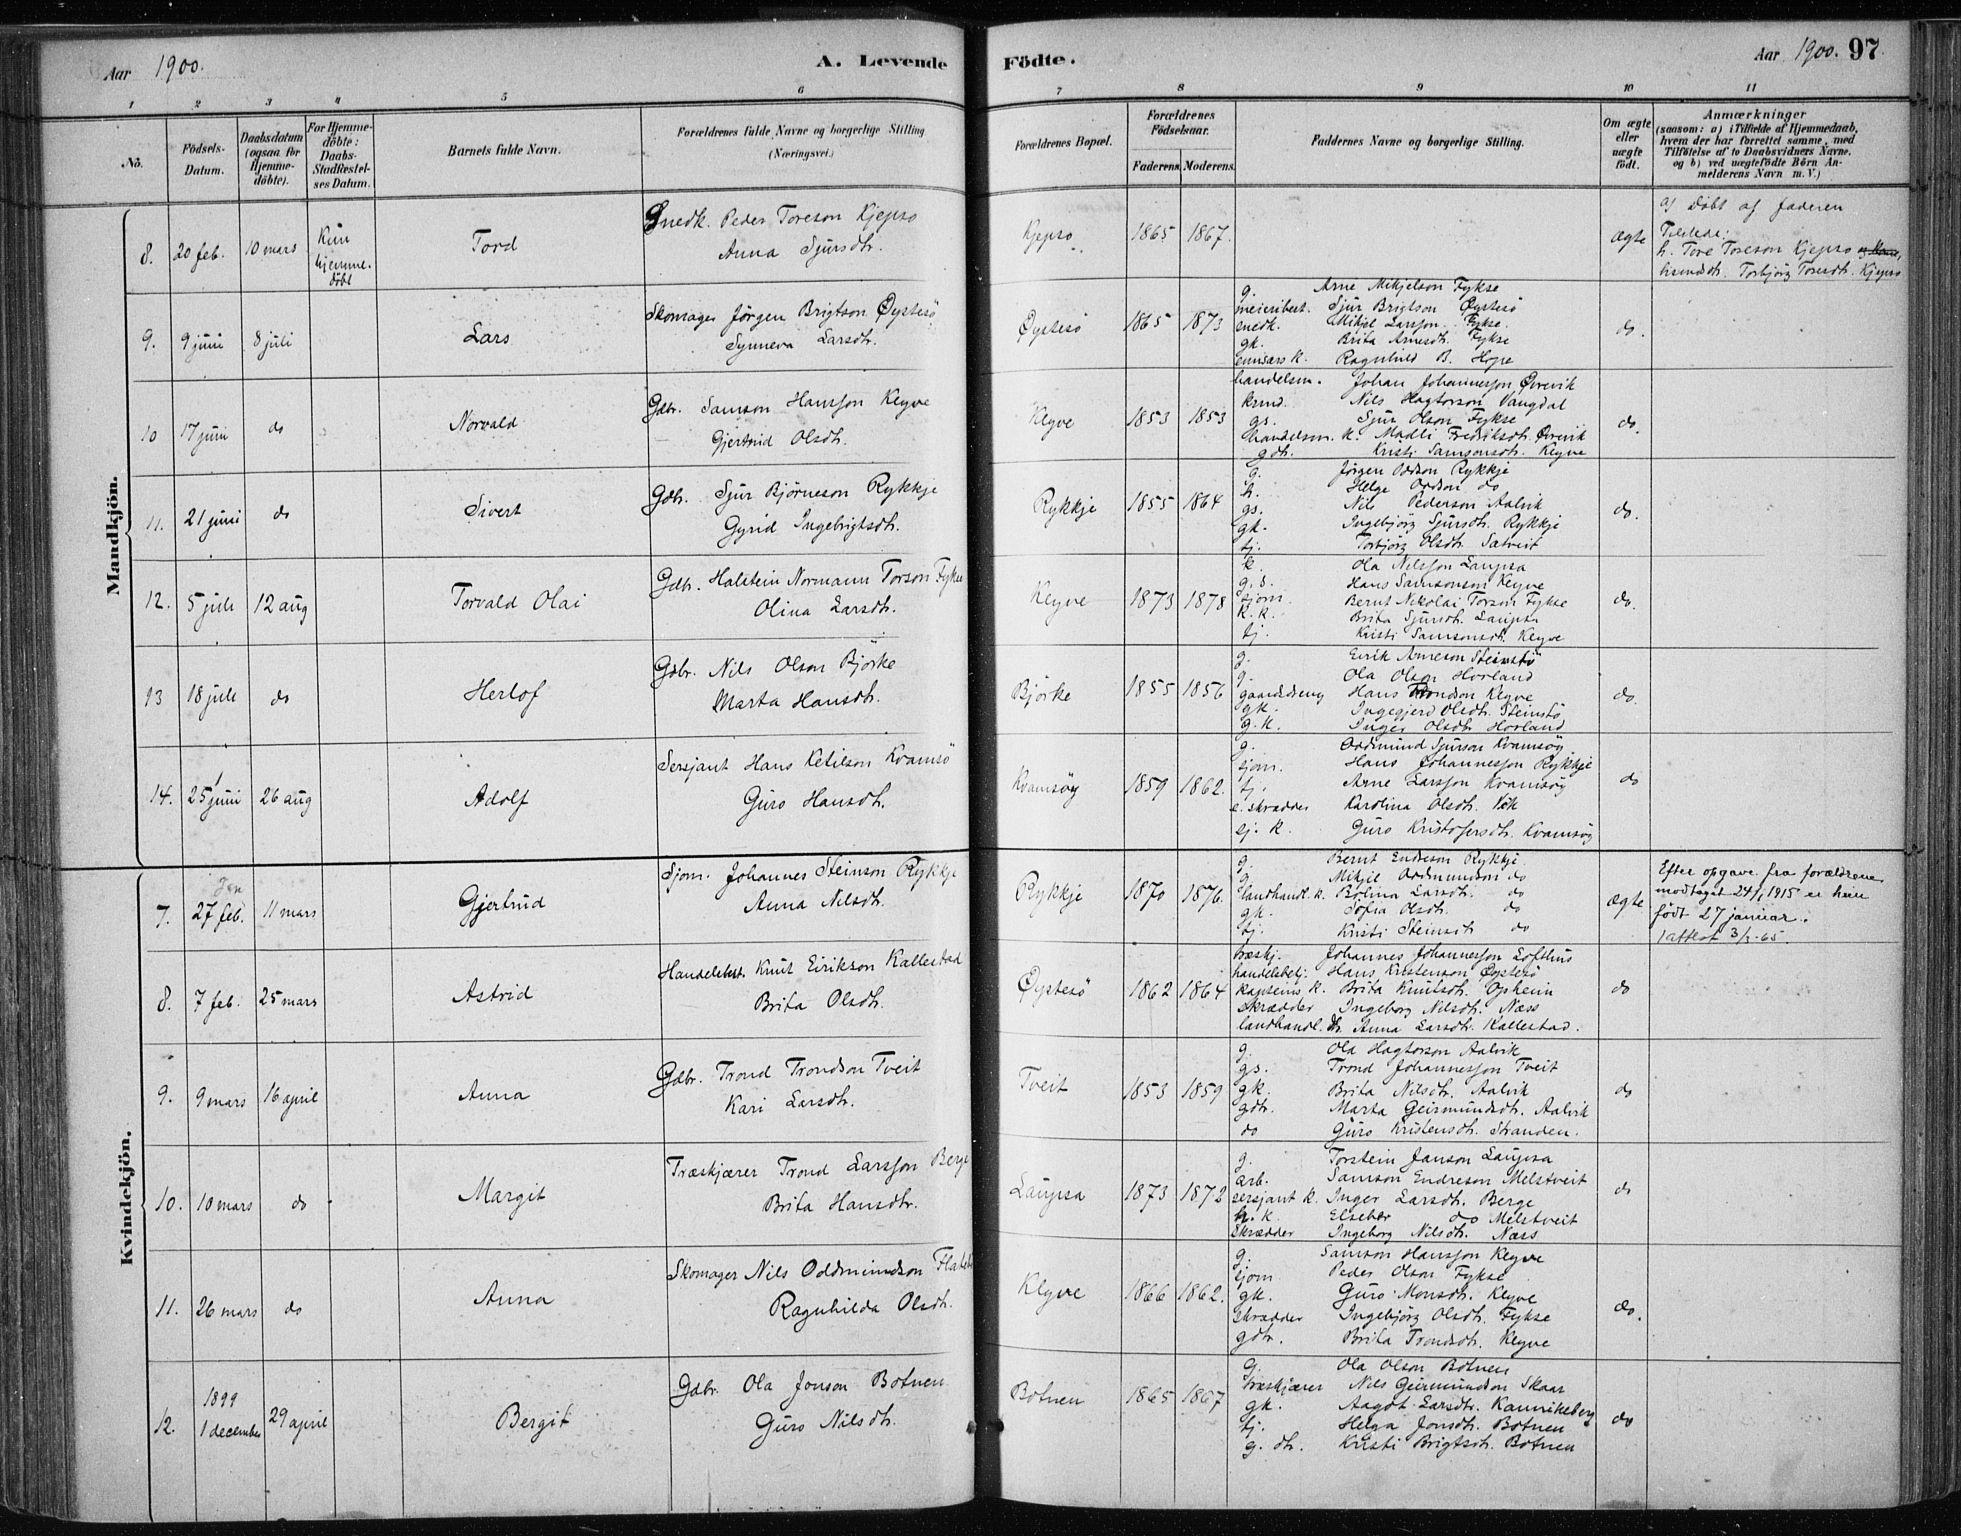 Aar 1900. A. Levende Födte. Aar 1900. 97
1 2 3 4 5 6 7 8 9 10 11
No. Födsels-Datum. Daabsdatum (ogsaa for Hjemme-döbte). For Hjemme-döbte: Daabs-Stadfæstel-ses Datum. Barnets fulde Navn. Forældrenes fulde Navne og borgerlige Stilling (Næringsvei.) Forældrenes Bopæl. Forældrenes Födselsaar. Faderens. Moderens. Faddernes Navne og borgerlige Stilling. Om ægte eller uægte födt. Anmærkninger (saasom: a) i Tilfælde af Hjemmedaab, hvem der har forrettet samme, med Tilföielse af to Daabsvidners Navne, og b) ved uægtefödte Börn An-melderens Navn m. V.)
Mandkjön.
8. 20 feb. 10 mars Kun hjemme-döbt Tord
Snedk. Peder Toreson Kjepso
Anna Sjursdtr.
Kjepso 1865 1867. ægte
a) Döbt af faderen
Tilstede:
h. Tore Toreson Kjepso
Torbjörg Toresdt. Kjepso
9. 9 juni 8 juli Lars
Skomager Jörgen Brigtson Öystesö
Synneva Larsdtr.
Öystesö 1865 1873 do.
g. Arne Mikjelson Fykse
meieribest. Sjur Brigtson Öystesö
snedk. Mikjel Larsson Fykse.
gk. Brita Arnesdtr. Fykse
Ragnhild B. Hope
10 17 juni do Norvald
Gdbr. Samson Hansson Klyve
Gjertrud Olsdtr.
Klyve 1853 1853 do.
handelsm. Johan Johannesson Övrevik
Nils Hagtorson Vangdal
gs. Sjur Olson Fykse
handelsm. k. Madli Fredriksdtr. Övrevik
gdtr. Kristi Samsonsdtr. Klyve
11. 21 juni do Sivert
Gdbr. Sjur Björneson Rykkje
Gyrid Ingebrigtsdtr.
Rykkje 1855 1864 do.
g. Jörgen Oddson Rykkje
h. Helge Oddson do
gs. Nils Pederson Aalvik
gk. Ingebjörg Sjursdtr. Rykkje
tj. Torbjörg Olsdtr. Sætveit
12. 5 juli 12 aug Torvald Olai
Gdbr. Halstein Normann Torson Fykse
Olina Larsdtr.
Klyve 1873 1878 do.
k. Ola Nilsson Laupsa
g.s. Hans Samsonson Klyve
sjom. Bernt Nikolai Torson Fykse
k.k. Brita Sjursdtr. Laupsa
tj. Kristi Samsonsdtr. Klyve
13 18 juli do Herlof
Gdbr. Nils Olson Björke
Marta Hansdtr.
Björke 1855 1856 do.
g. Eirik Arneson Steinstö
g. Ola Olson Horland
gaardsdreng Hans Trondson Klyve
gk. Ingegjerd Olsdtr. Steinstö
g.k. Inger Olsdtr. Horland
14. 25 juni 26 aug Adolf
Sersjant Hans Ketilson Kvamsö
Guro Hansdtr.
Kvamsöy 1859 1862. do
g. Oddmund Sjurson Kvamsöy
sjom. Hans Johannesson Rykkje
tj. Arne Larsson Kvamsöy
e. skrædder Karolina Olsdtr. Vik
sj. k. Guro Kristofersdtr. Kvamsöy
Kvindekjön.
Jan
7. 27 feb. 11 mars Gjertrud
Sjom. Johannes Steinson Rykkje
Anna Nilsdtr.
Rykkje 1870 1876. ægte
g. Bernt Endreson Rykkje
g. Mikjel Oddmundson do
landhandl. k. Bolina Larsdtr. do
gk. Sofia Olsdtr. do
tj. Kristi Steinsdtr do
Efter opgave fra forældrene
modtaget 24/1 1915 er hun
födt 27 januar.
1 attest 3/3-65.
8. 7 feb. 25 mars Astrid
Handelsbest. Knut Eirikson Kallestad
Brita Olsdtr.
Öystesö 1862 1864 do
træskj. Johannes Johannesson Lofthus
handelsbetj. Hans Kristenson Öystesö
kapteins k. Brita Knutsdtr. Opheim
skrædder Ingeborg Nilsdtr. Næss
landhandl. dtr. Anna Larsdtr. Kallestad.
9. 9 mars 16 april Anna
Gdbr. Trond Trondson Tveit
Kari Larsdtr.
Tveit 1853 1859 do
g. Ola Hagtorson Aalvik
gs. Trond Johannesson Tveit
gk. Brita Nilsdtr. Aalvik
gdtr. Marta Geirmundsdtr. Aalvik
do Guro Kristensdtr. Stranden.
10. 10 mars do Margit
Træskjærer Trond Larsson Berge
Brita Hansdtr.
Laupsa 1873 1872 do
g. Torstein Janson Laupsa
arb. Samson Endreson Melstveit
sersjant k. Inger Larsdtr. Berge
h. k. Elseber do Melstveit
skrædder Ingeborg Nilsdtr. Næss
11. 26 mars do Anna
Skomager Nils Oddmundson
Ragnhilda Olsdtr.
Klyve 1866 1862. do.
g. Samson Hansson Klyve
sjom Peder Olson Fykse
gk. Guro Monsdtr. Klyve
skrædder Ingebjörg Olsdtr. Fykse
gdtr. Brita Trondsdtr. Klyve
12. 1899 1 december 29 april Bergit
Gdbr. Ola Jonson Botnen
Guro Nilsdtr.
Botnen 1865 1867 do
g. Ola Olson Botnen
træskjærer Nils Geirmundson Skaar
gk. Aagot Larsdtr. Kannikeberg
tj. Helga Jonsdtr. Botnen
g. dtr. Kristi Brigtsdtr. Botnen